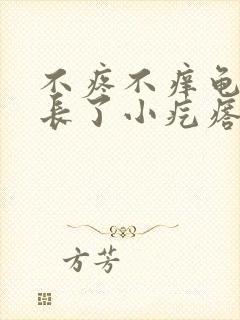 不疼不痒龟
长了小疙瘩
方芳